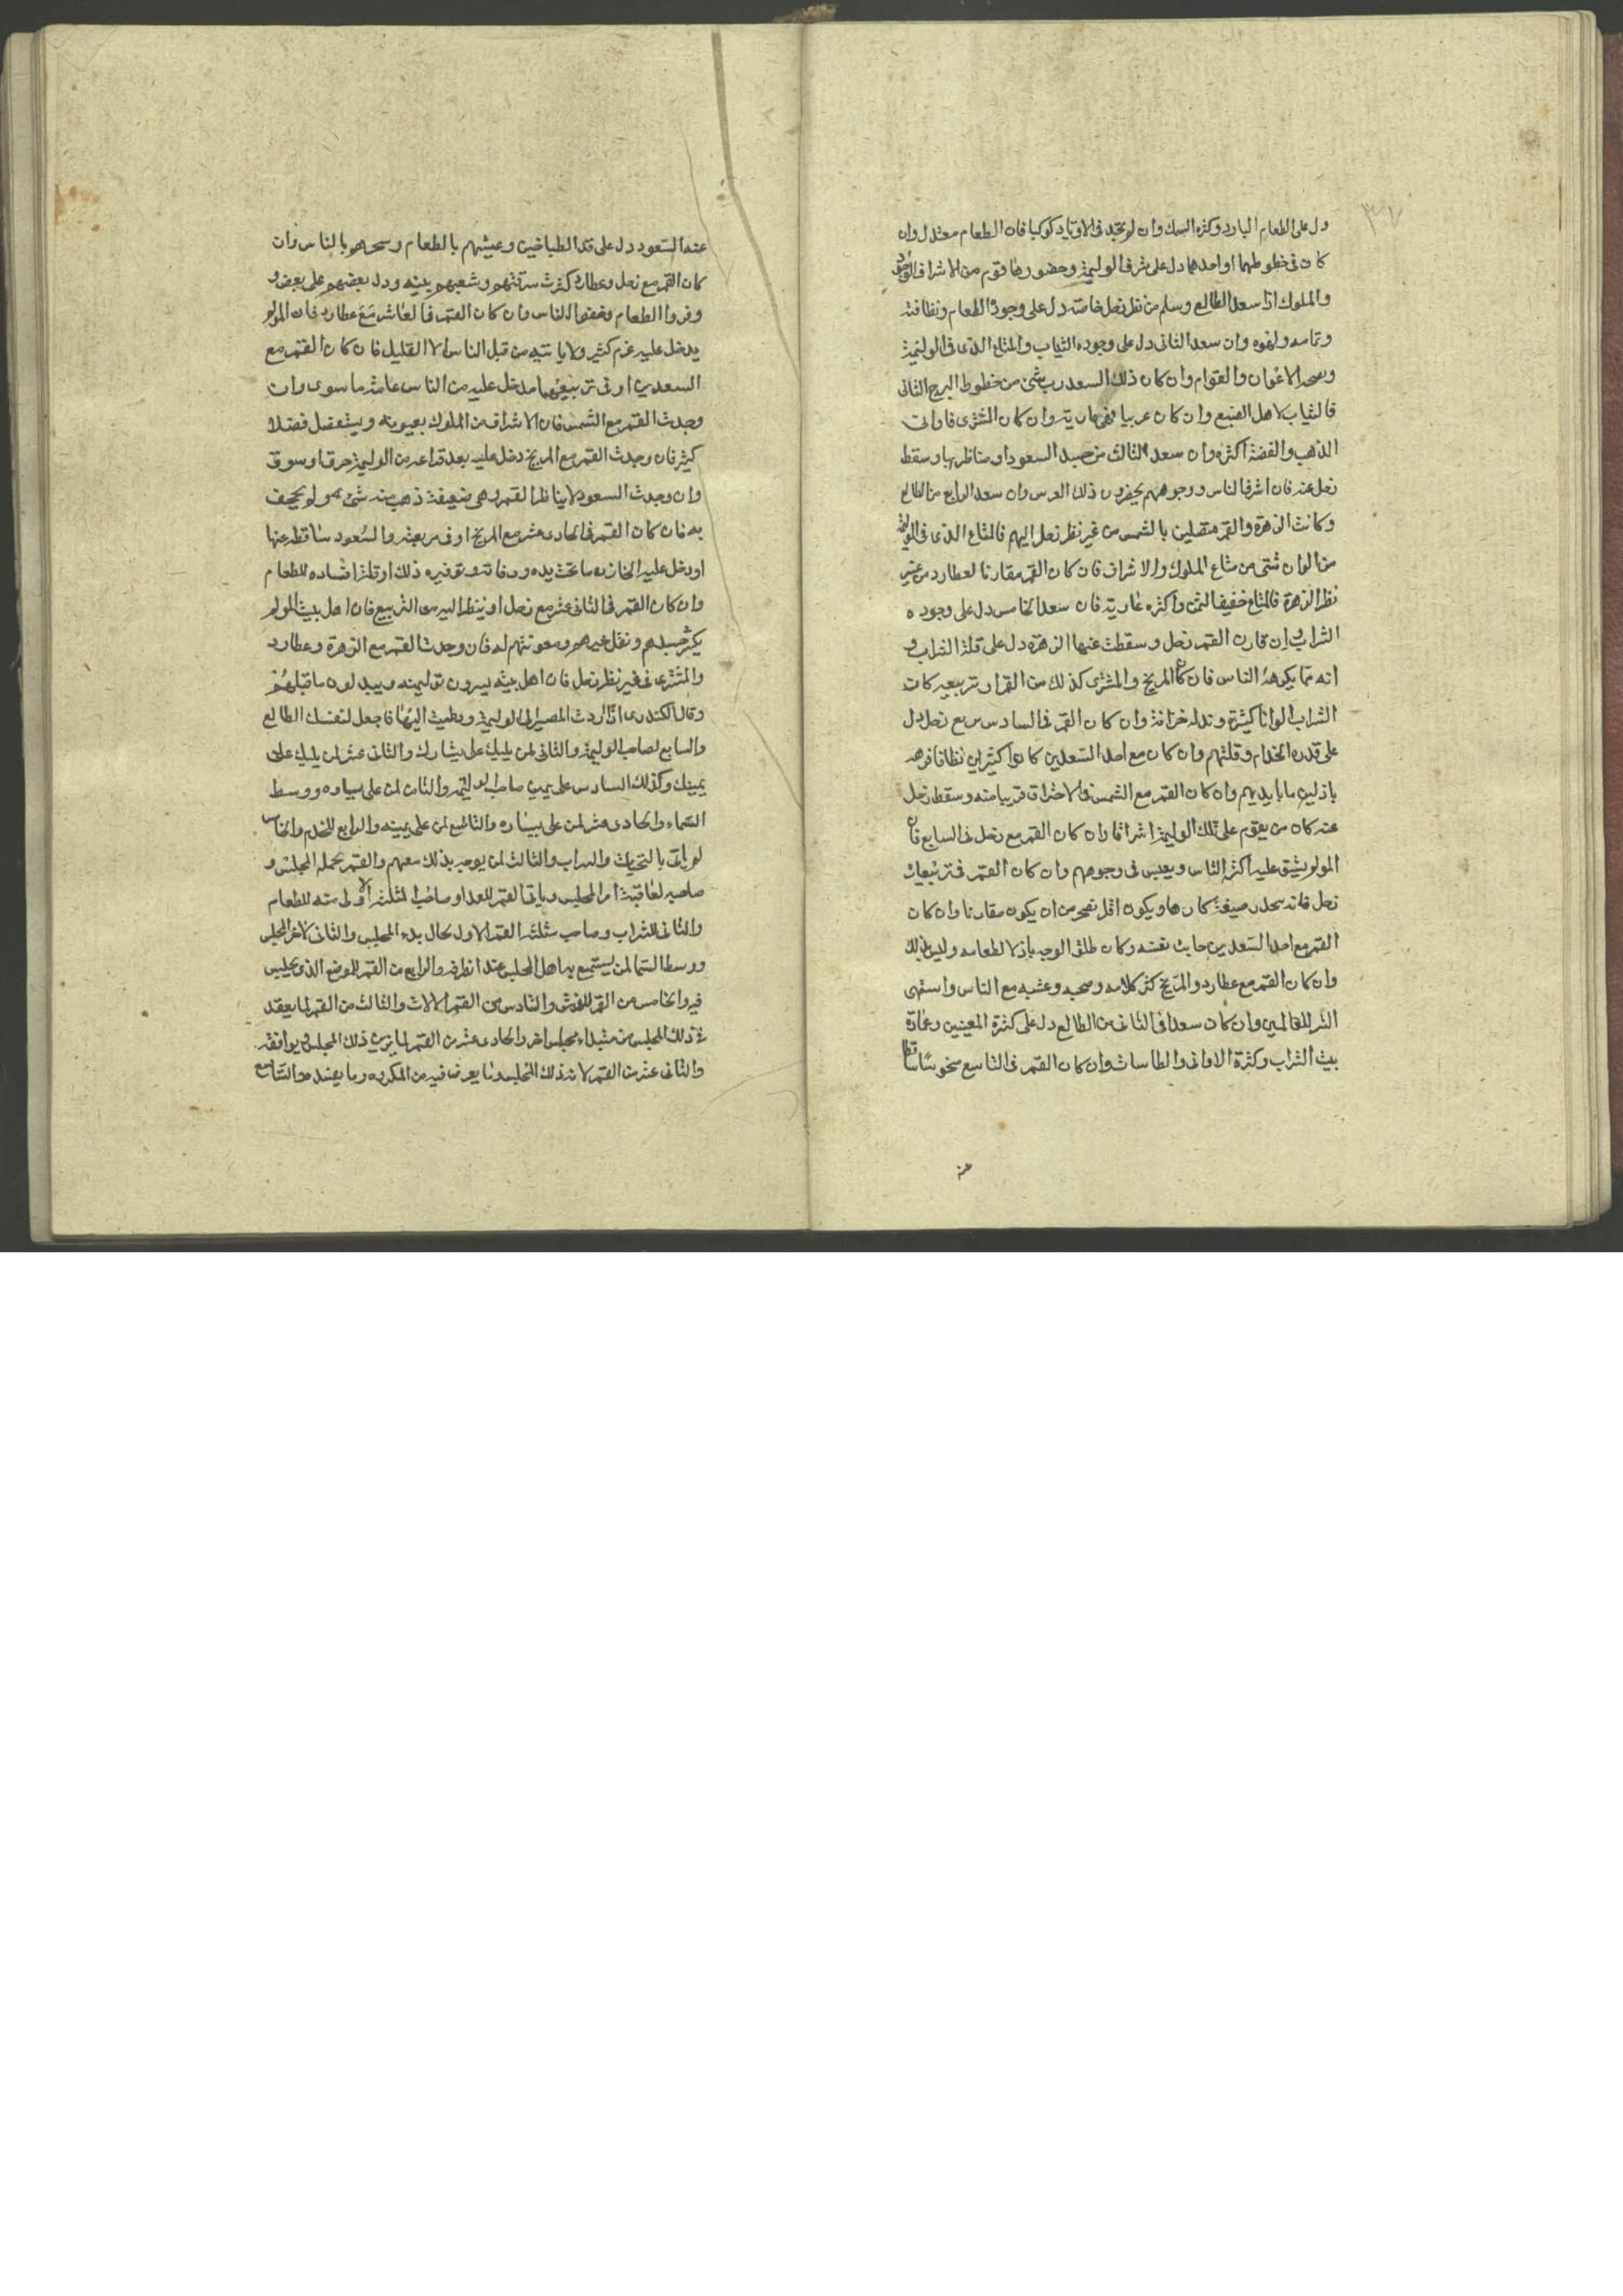 ٣٧
دل على الطعام البارد وكثرة السمك وان لم تجد فى الاوتاد كوكبا فان الطعام معتدل وان
كان فى خطوطهما او احدهما دل على شرف الوليمة وحضورها قوم من الاشراف
والملوك اذا سعد الطالع وسلم من نظر زحل خاصة دل على وجود الطعام ونظافته
وان سعد الثانى دل على وجوده الثياب والمتاع الذى فى الوليمة
الاعوان والقوام وان كان ذلك السعد رب شئ من خطوط البرج الثانى
فالثياب لاهل الصنيع وان كان غريبا فهى عارية وان كان المشترى فاوانى
الذهب والفضة اكثره وان سعد الثالث من جسد السعود او مناظرها وسقط
زحل عنه فان اشرف الناس ووجوههم يحضرون ذلك العرس وان سعد الرابع من الطالع
وكانت الزهرة والقمر متصلين بالشمس من غير نظر زحل اليهم فالمتاع الذى فى الوليمة
من الوان شتى من متاع الملوك والاشراف فان كان القمر مقارنا لعطارد من غير
نظر الزهرة فالمتاع خفيف الثمن واكثره عارية فان سعد الخامس دل على وجوده
الشراب وان قارن القمر زحل وسقطت عنها الزهرة دل على قلة الشراب و
انه مما يكرهه الناس فان كان المريخ والمشترى كذلك من القمر او تربيعيه كان
الشراب الوانا كثيرة وان كان القمر فى السادس مربع زحل دل
على قذره الخدام وقلتهم وان كان مع احد السعدين كانوا كثيرين نظافا فرهه
باذلين ما بايديهم وان كان القمر مع الشمس فى الاحتراق قريبا منه وسقط زحل
عنه كان من يقوم على تلك الوليمة اشرافا وان كان القمر مع زحل فى السابع فان
المولم يشق عليه اكثر الناس ويعبس فى وجوههم وان كان القمر فى تربيعات
زحل فانه كان ويكون اقل من ان يكون مقارنا وان كان
القمر مع احد السعدين نفسه وكان طلق الوجه باذلا لطعامه
وان كان القمر مع عطارد والمريخ كثر كلامه وصخبه وعشبه مع الناس
الشر للعالمين وان كان سعدا فى الثامن من الطالع دل على كثرة المعينين وعمارة
بيت الشراب وكثرة الاوانى والطاسات وان كان القمر فى التاسع منحوسا ساقطا
عند
عند السعود دل على الطباخين وعيشهم بالطعام بالناس وان
كان القمر مع زحل وعطارد كثرت وشغبهم بينه ودل بعضهم على بعض و
الطعام الناس وان كان القمر فى العاشر مع عطارد فان المولم
يدخل عليه غرم كثير ولا ياتيه من قبل الناس الا القليل فان كان القمر مع
السعدين او فى تربيعهما دخل عليه من الناس عامة ما سوى وان
وجدت القمر مع الشمس فان الاشراف من الملوك يعينونه ويستفضل فضلا
كثير فان وجدت القمر مع المريخ دخل عليه بعد من الوليمة حرق او سوق
وان وجدت السعود لا يناظر القمر وهى ضعيفة ذهب منه شئ ولم يجحف
به فان كان القمر فى الحادى عشر مع المريخ او فى مربعته والسعود ساقطة عنها
او دخل عليه الخازن ما تحت يده وتوفيره ذلك او قلة افساده للطعام
وان كان القمر فى الثانى عشر مع زحل او ينظر اليه من التربيع فان اهل بيت المولم
يكثر حسدهم ومعونتهم له فان وجدت القمر مع الزهرة وعطارد
والمشترى فى غير نظر زحل فان اهل بيته يسرون ويبذلون ما قبلهم
وقال الكندى اذا اردت المصير الى الوليمة ودعيت اليها فاجعل لنفسك الطالع
والسابع لصاحب الوليمة والثانى لمن يليك على يسارك والثانى عشر لمن يليك على
يمينك وكذلك السادس على يمين صاحب الوليمة والثامن لمن على يساره ووسط
السماء والحادى عشر لمن على يساره والتاسع لمن على يمينه والرابع للخدم والخامس
والثالث لمن يوجه بذلك معهم والقمر بجملة المجلس و
صاحبه لعاقبة امر المجلس وصاحب المثلثة الاولى منه للطعام
والثانى للشراب وصاحب مثلثة القمر الاول لحال بدء المجلس والثانى لاخر المجلس
ووسط السما لمن يستمع به اهل المجلس والرابع من القمر للموضع الذى يجلس
فيه والخامس من القمر للفرش والسادس من القمر والثالث من القمر لما يعقد
فى ذلك المجلس من مجلس اخر والحادى عشر من القمر لما يزين ذلك المجلس ويوافقه
والثانى عشر من القمر ذلك المجلس وما يعرض فيه من المكروه وما يفسده والتاسع